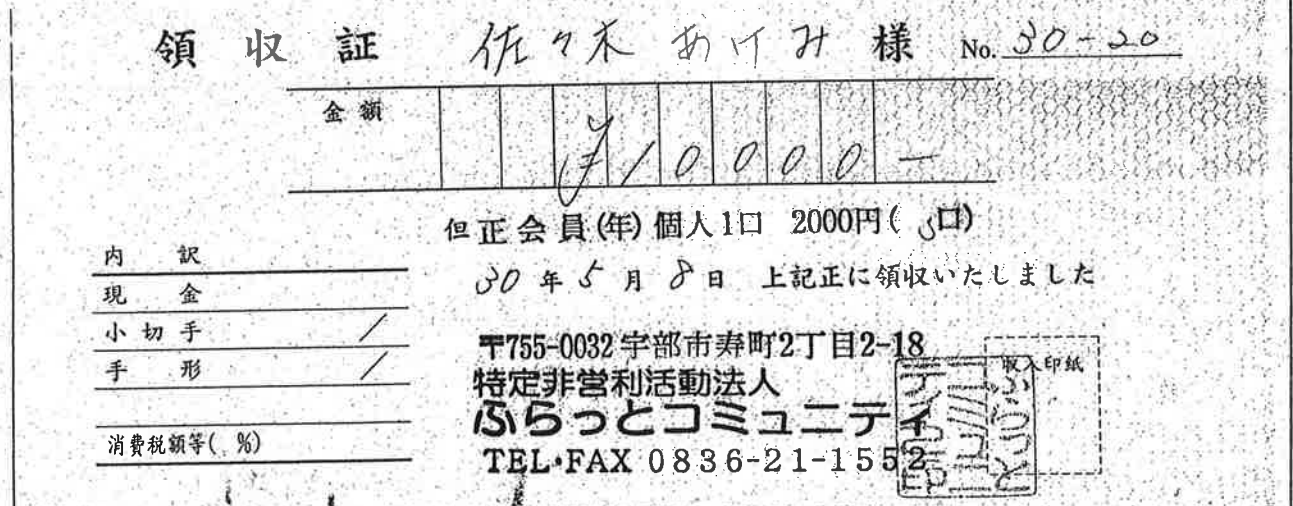 領収証 佐々木 あけみ 様 No. 30-20
金額 ¥10000-
但正会員(年)個人1口 2000円(5口)
30年5月8日 上記正に領収いたしました
内訳
現金
小切手 /
手形 /
消費税額等( %)
〒755-0032 宇部市寿町2丁目2-18
特定非営利活動法人
ふらっとコミュニティ
TEL・FAX 0836-21-1552
収入印紙
ふらっと
コミュニ
ティ之印